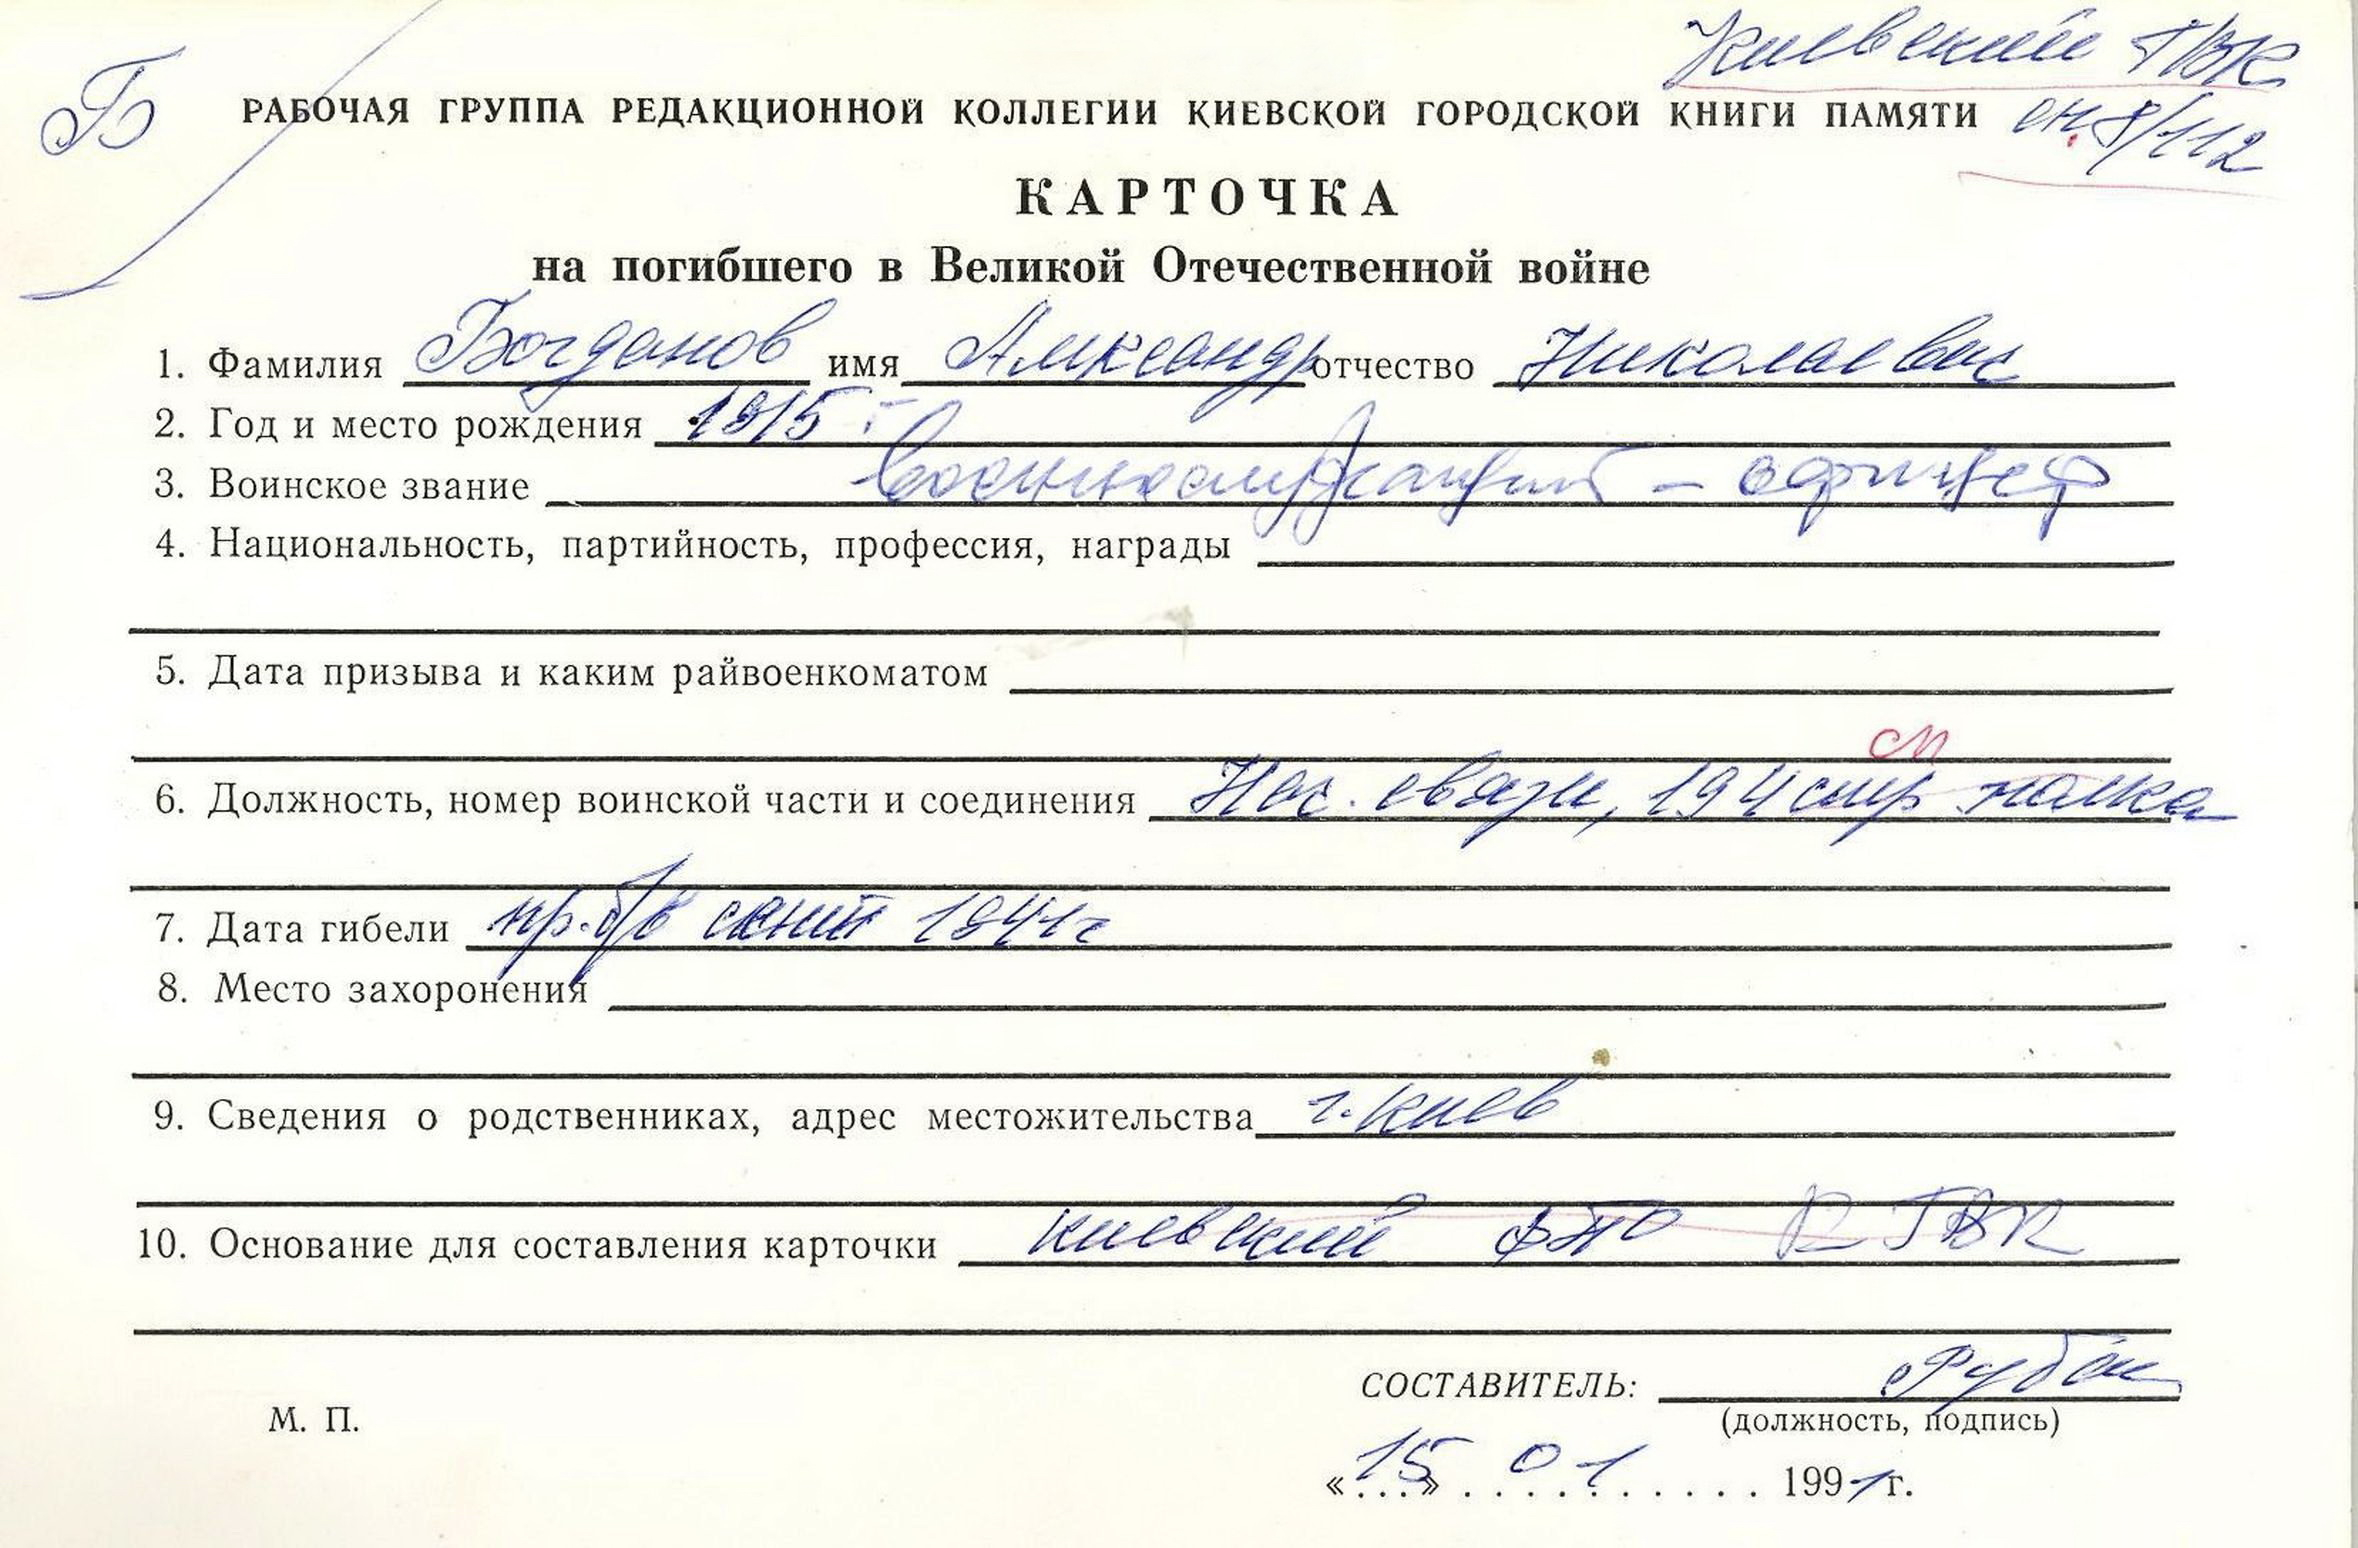 Киевский ГВК
Б
РАБОЧАЯ ГРУППА РЕДАКЦИОННОЙ КОЛЛЕГИИ КИЕВСКОЙ ГОРОДСКОЙ КНИГИ ПАМЯТИ
8/112
КАРТОЧКА
на погибшего в Великой Отечественной войне
1. Фамилия Богданов имя Александр отчество Николаевич
2. Год и место рождения 1915 г
3. Воинское звание Военнослужащий – офицер
4. Национальность, партийность, профессия, награды
5. Дата призыва и каким райвоенкоматом
6. Должность, номер воинской части и соединения Нач. связи, 194 полка
сп
7. Дата гибели пр. б/в 1941 г
8. Место захоронения
9. Сведения о родственниках, адрес местожительства г. Киев
10. Основание для составления карточки Киевский ГВК
СОСТАВИТЕЛЬ:
(должность, подпись)
М. П.
«15» 01 1991 г.